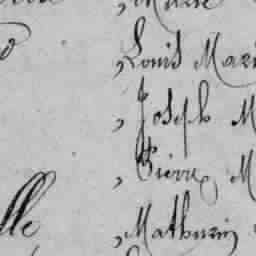 , Louis Mari
, Joseph M
, Pierre, M
lle , Mathurin